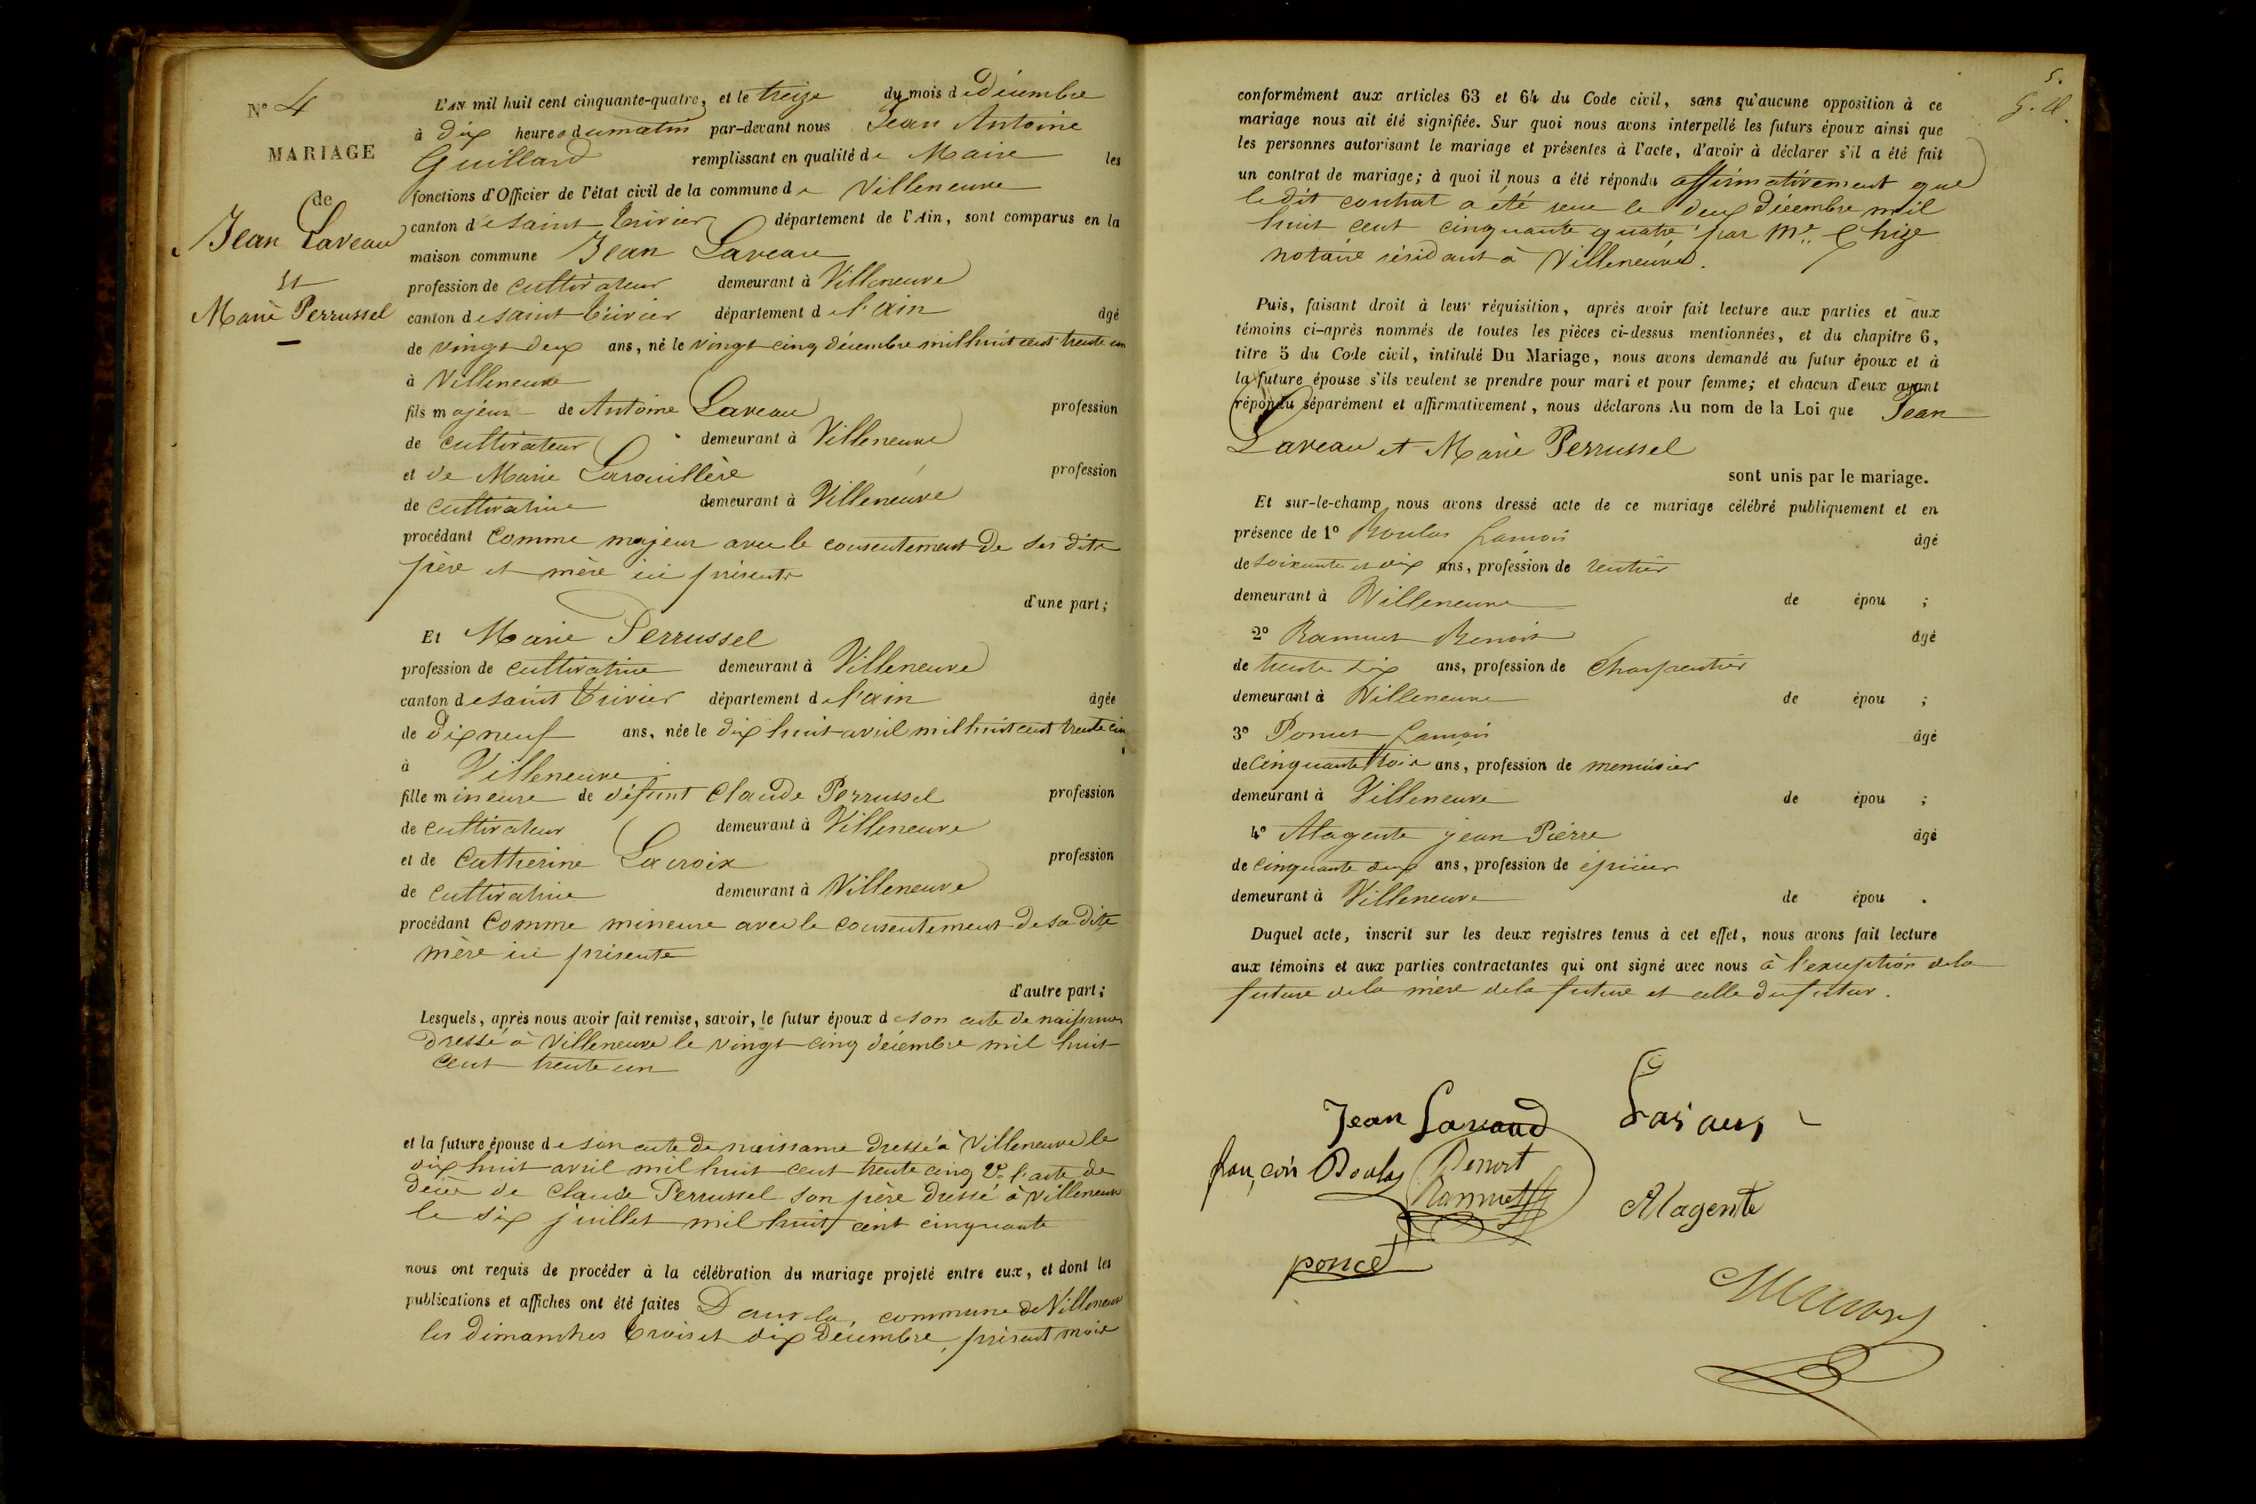 N° 4
MARIAGE
de
Jean Laveau
et
Marie Perrussel
L'AN mil huit cent cinquante-quatre, et le treize du mois de décembre
à dix heures du matin par-devant nous Jean Antoine
Guillard remplissant en qualité de Maire les
fonctions d'Officier de l'état civil de la commune de Villeneuve
canton de saint Trivier département de l'Ain, sont comparus en la
maison commune Jean Laveau
profession de cultivateur demeurant à Villeneuve
canton de saint Trivier département de l'ain âgé
de vingt deux ans, né le vingt cinq décembre mil huit cent trente un
à Villeneuve
fils majeur de Antoine Laveau profession
de cultivateur demeurant à Villeneuve
et de Marie Larouillère profession
de cultivatrice demeurant à Villeneuve
procédant Comme majeur avec le consentement de ses dits
père et mère ici présents
d'une part;
Et Marie Perrussel
profession de cultivatrice demeurant à Villeneuve
canton de saint Trivier département de l'ain âgée
de dix neuf ans, née le dix huit avril mil huit cent trente cinq
à Villeneuve
fille mineure de défunt Claude Perrussel profession
de cultivateur demeurant à Villeneuve
et de Catherine Lacroix profession
de cultivatrice demeurant à Villeneuve
procédant Comme mineure avec le consentement de sa dite
mère ici présente
d'autre part;
Lesquels, après nous avoir fait remise, savoir, le futur époux de son acte de naissance
dressé à Villeneuve le vingt cinq décembre mil huit
cent trente un
et la future épouse de son acte de naissance dressé à Villeneuve le
dix huit avril mil huit cent trente cinq 2° l'acte de
décès de Claude Perrussel son père dressé à Villeneuve
le six juillet mil huit cent cinquante
nous ont requis de procéder à la célébration du mariage projeté entre eux, et dont les
publications et affiches ont été faites Dans la commune de Villeneuve
les dimanches trois et dix décembre, présent mois
5.
conformément aux articles 63 et 64 du Code civil, sans qu'aucune opposition à ce
mariage nous ait été signifiée. Sur quoi nous avons interpellé les futurs époux ainsi que
les personnes autorisant le mariage et présentes à l'acte, d'avoir à déclarer s'il a été fait
un contrat de mariage; à quoi il nous a été répondu affirmativement que
le dit contrat a été reçu le deux décembre mil
huit cent cinquante quatre par Me
notaire résidant à Villeneuve.
Puis, faisant droit à leur réquisition, après avoir fait lecture aux parties et aux
témoins ci-après nommés de toutes les pièces ci-dessus mentionnées, et du chapitre 6,
titre 5 du Code civil, intitulé Du Mariage, nous avons demandé au futur époux et à
la future épouse s'ils veulent se prendre pour mari et pour femme; et chacun d'eux ayant
répondu séparément et affirmativement, nous déclarons Au nom de la Loi que Jean
Laveau et Marie Perrussel
sont unis par le mariage.
Et sur-le-champ nous avons dressé acte de ce mariage célébré publiquement et en
présence de 1° Boulas françois âgé
de soixante et dix ans, profession de rentier
demeurant à Villeneuve de épou ;
2° Ramuet Benoit âgé
de trente six ans, profession de Charpentier
demeurant à Villeneuve de épou ;
3° Poncet françois âgé
de cinquante trois ans, profession de menuisier
demeurant à Villeneuve de épou ;
4° Alagente jean Pierre âgé
de cinquante deux ans, profession de épicier
demeurant à Villeneuve de épou .
Duquel acte, inscrit sur les deux registres tenus à cet effet, nous avons fait lecture
aux témoins et aux parties contractantes qui ont signé avec nous à l'exception de la
future de la mère de la future et celle du futur.
Jean Lavaud
françois Boulas Benoit
Ramuet Alagente
poncet